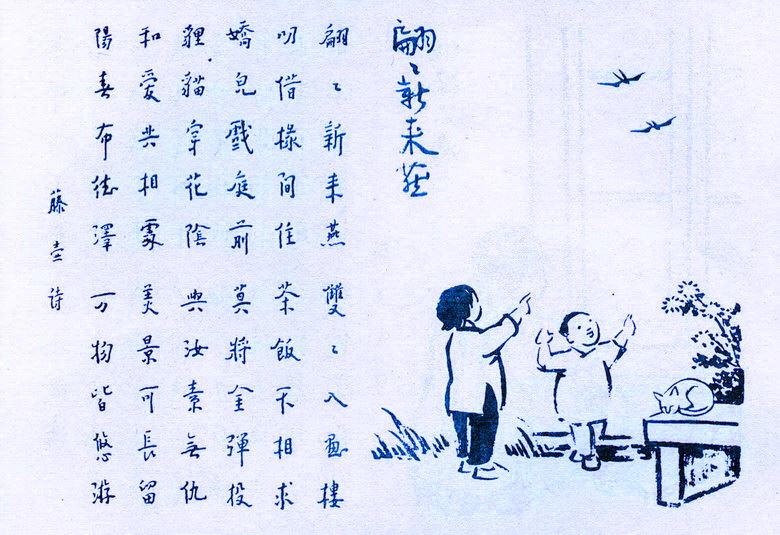 翩〻新来燕
翩〻新来燕雙〻入画樓
叨借椽間住茶飯不相求
嬌兒戲庭前莫將金彈投
貍貓穿花陰與汝素無仇
和爱共相處美景可長留
陽春布德澤万物皆悠游
藤壺诗